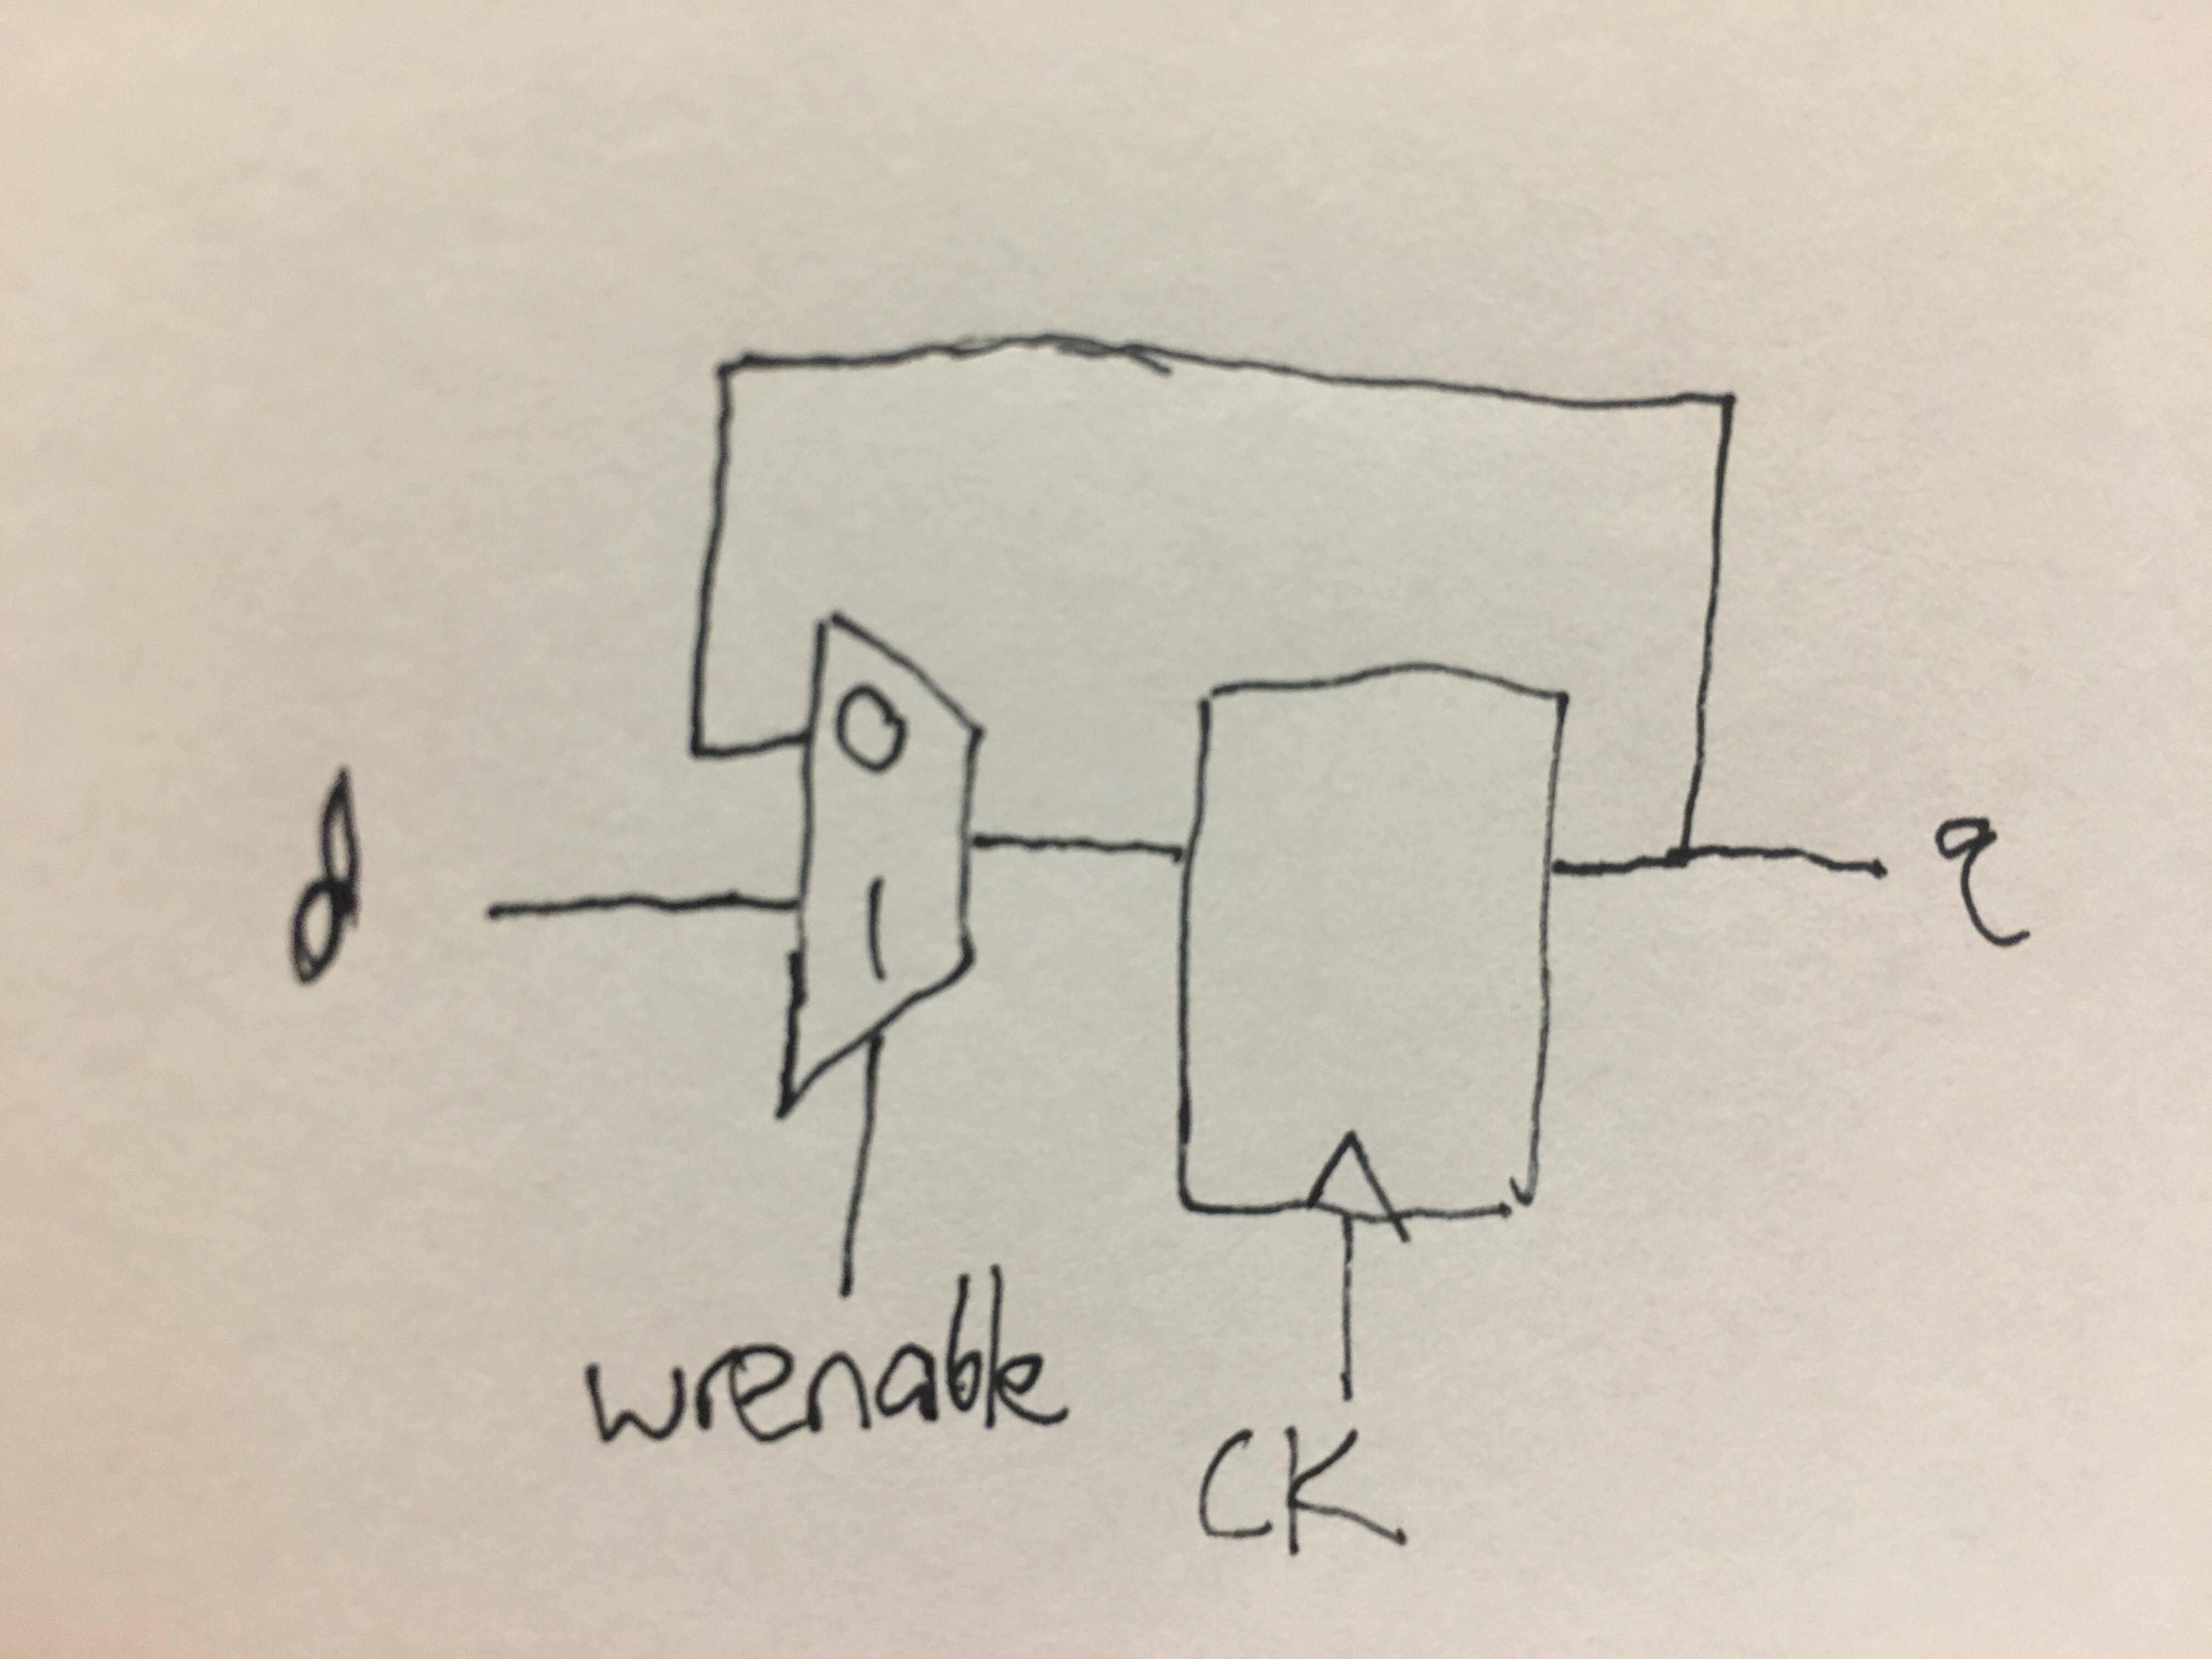 0
d
1
q
wrenable
CK